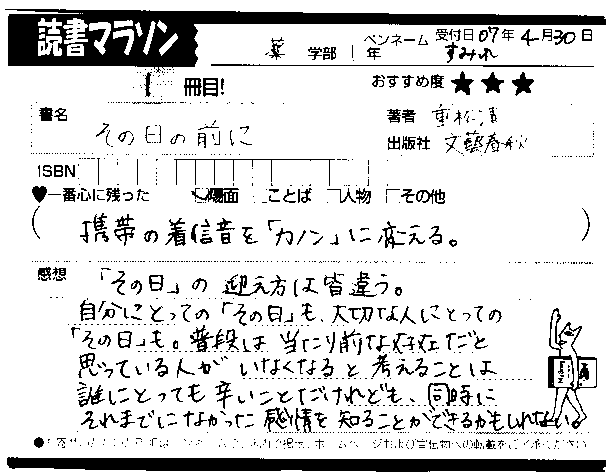 読書マラソン
薬 学部 1 年 ペンネーム すみれ 受付日 07年 4月30日
1 冊目! おすすめ度 ★★★
書名 その日の前に
著者 重松清
出版社 文藝春秋
ISBN
♥一番心に残った 場面 ことば 人物 その他
(携帯の着信音を「カノン」に変える。)
感想 「その日」の迎え方は皆違う。
自分にとっての「その日」も、大切な人にとっての
「その日」も。普段は当たり前な存在だと
思っている人がいなくなると考えることは
誰にとっても辛いことだけれども、同時に
それまでになかった感情を知ることができるかもしれない。